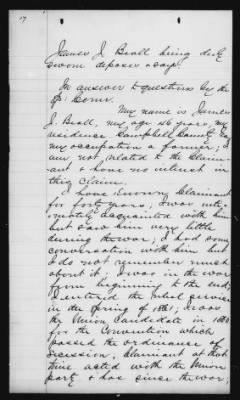 17
James J. Beall being duly
sworn deposes & says:
In answer to questions by the
Sp: Comr.
My name is James
J. Beall, my age 56 years, my
residence Campbell County Ga
my occupation a farmer; I
am not related to the claim-
ant & have no interest in
this claim.
I have known Claimant
for forty years; I was inti-
mately acquainted with him
but saw him very little
during the war; I had some
conversation with him but
I do not remember much
about it; I was in the war
from beginning to the end;
I entered the rebel service
in the Spring of 1861; I was
the Union Candidate in 1860
for the Convention which
passed the ordinance of
secession; Claimant at that
time acted with the Union
party & has since the war;